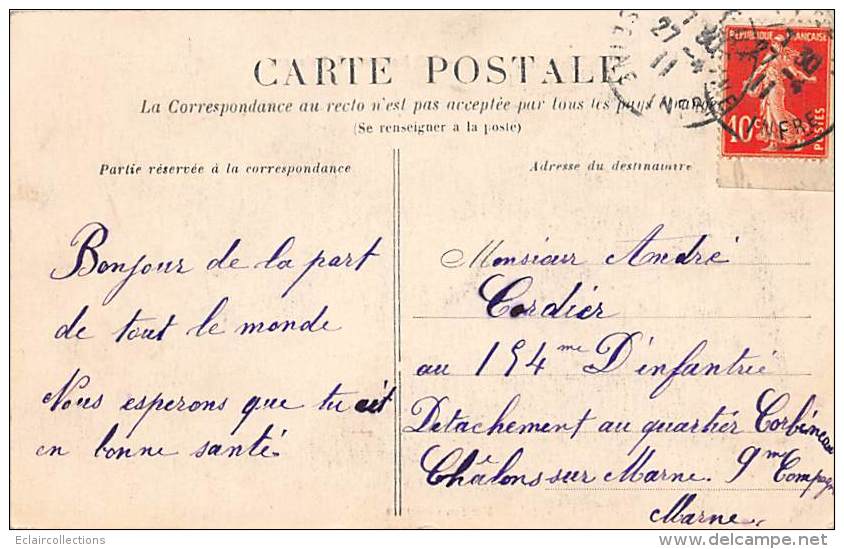 CARTE POSTALE
La Correspondance au recto n'est pas acceptée par tous les pays
(Se renseigner à la poste)
Partie réservée à la correspondance
Bonjour de la part
de tout le monde
Nous esperons que tu ait
en bonne santé.
Adresse du destinataire
Monsieur André
Cordier
au 154me D'infantrie
Detachement au quartier Corbineau
Châlons sur Marne. 9me Compagn
Marne.
REPUBLIQUE FRANÇAISE
10c
POSTES
27
11
Eclaircollections